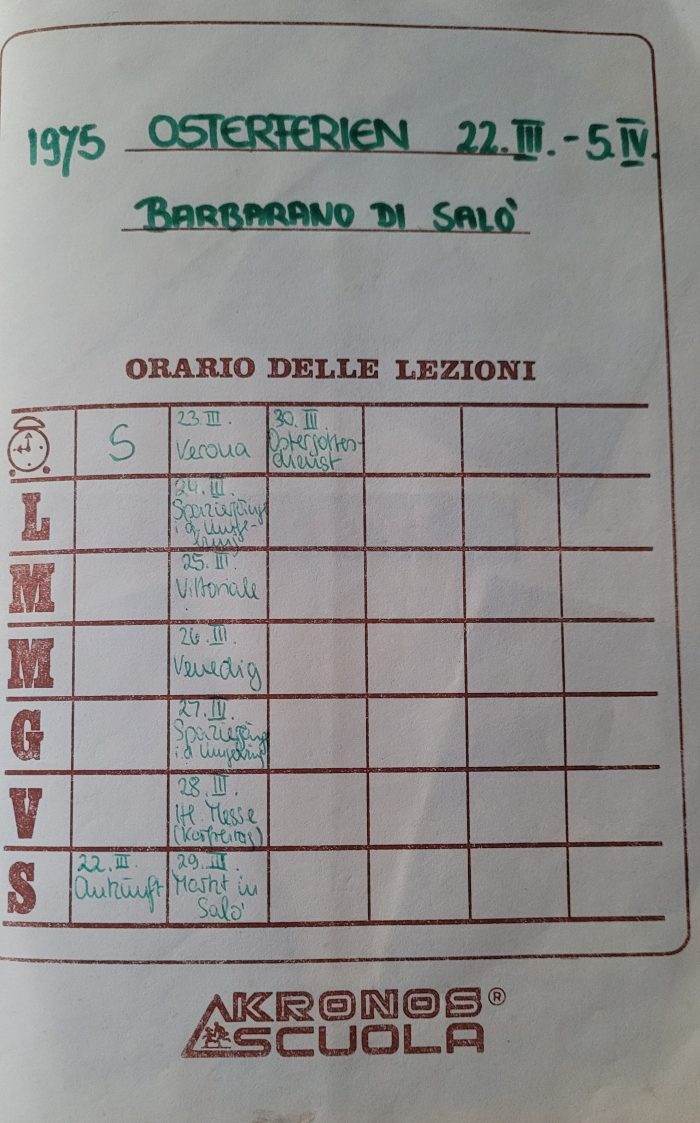 1975 OSTERFERIEN 22.III.-5.IV.
BARBARANO DI SALO'
ORARIO DELLE LEZIONI
S
23.III.
Verona
30.III
Ostergottes-
dienst
L
24.III.
Spaziergänge
i d Umge-
bung
M
25.III.
Vittoriale
M
26.III.
Venedig
G
27.III.
Spaziergäng
i d Umgebung
V
28.III.
Hl. Messe
(Karfreitag)
S
22.III.
Ankunft
29.III.
Markt in
Salo'
AKRONOS®
SCUOLA